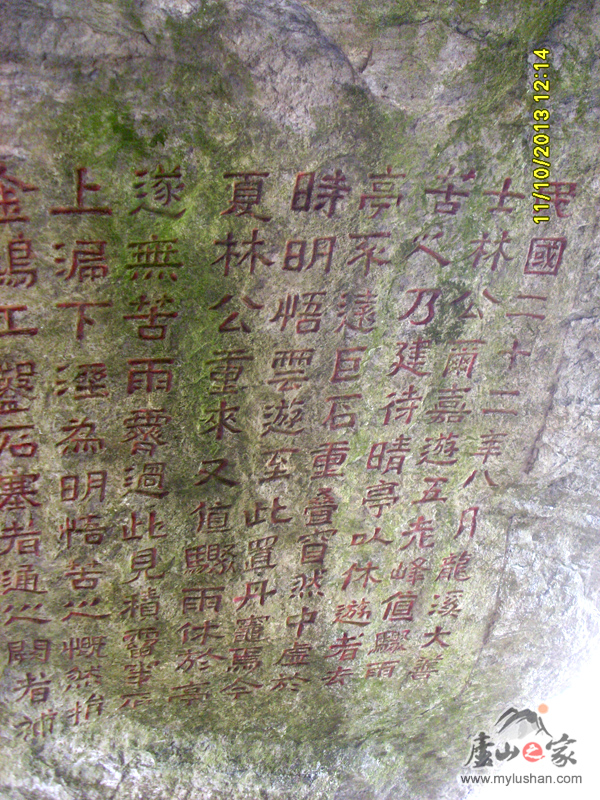 民國二十二年八月龍溪大善
士林公爾嘉遊五老峰值驟雨
苦之乃建待晴亭以休遊者去
亭不遠巨石重疊窅然中虛於
時明悟雲遊至此置丹竈焉今
夏林公重來又值驟雨休於亭
遂無苦雨霽過此見積霤坐石
上漏下溼為明悟苦之慨然捐
金鳩工鑿石塞者通之闕者補
11/10/2013 12:14
廬山之家
www.mylushan.com